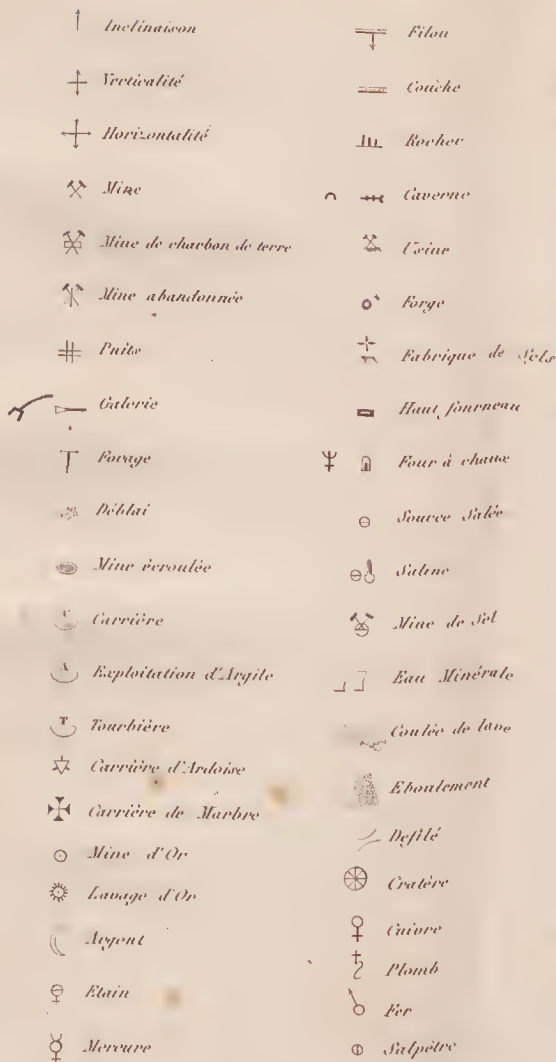 Inclinaison
Verticalité
Horizontalité
Mine
Mine de charbon de terre
Mine abandonnée
Puits
Galerie
Forage
Déblai
Mine écroulée
C Carrière
A Exploitation d'Argile
T Tourbière
Carrière d'Ardoise
Carrière de Marbre
Mine d'Or
Lavage d'Or
Argent
Etain
Mercure
Filon
Couche
Rocher
Caverne
Usine
Forge
Fabrique de Sels
Haut fourneau
Four à chaux
Source Salée
Saline
Mine de Sel
Eau Minérale
Coulée de lave
Eboulement
Defilé
Cratère
Cuivre
Plomb
Fer
Salpêtre